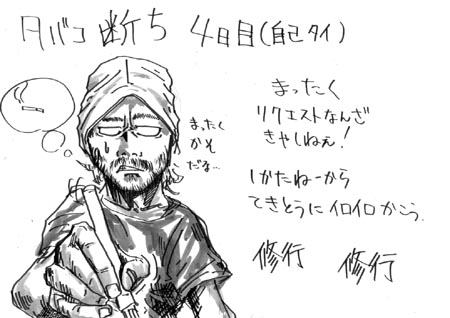 タバコ断ち 4日目(自己タイ)
まったく
かそ
だな…
まったく
リクエストなんざ
きやしねぇ!
しかたねーから
てきとうにイロイロかこう.
修行 修行